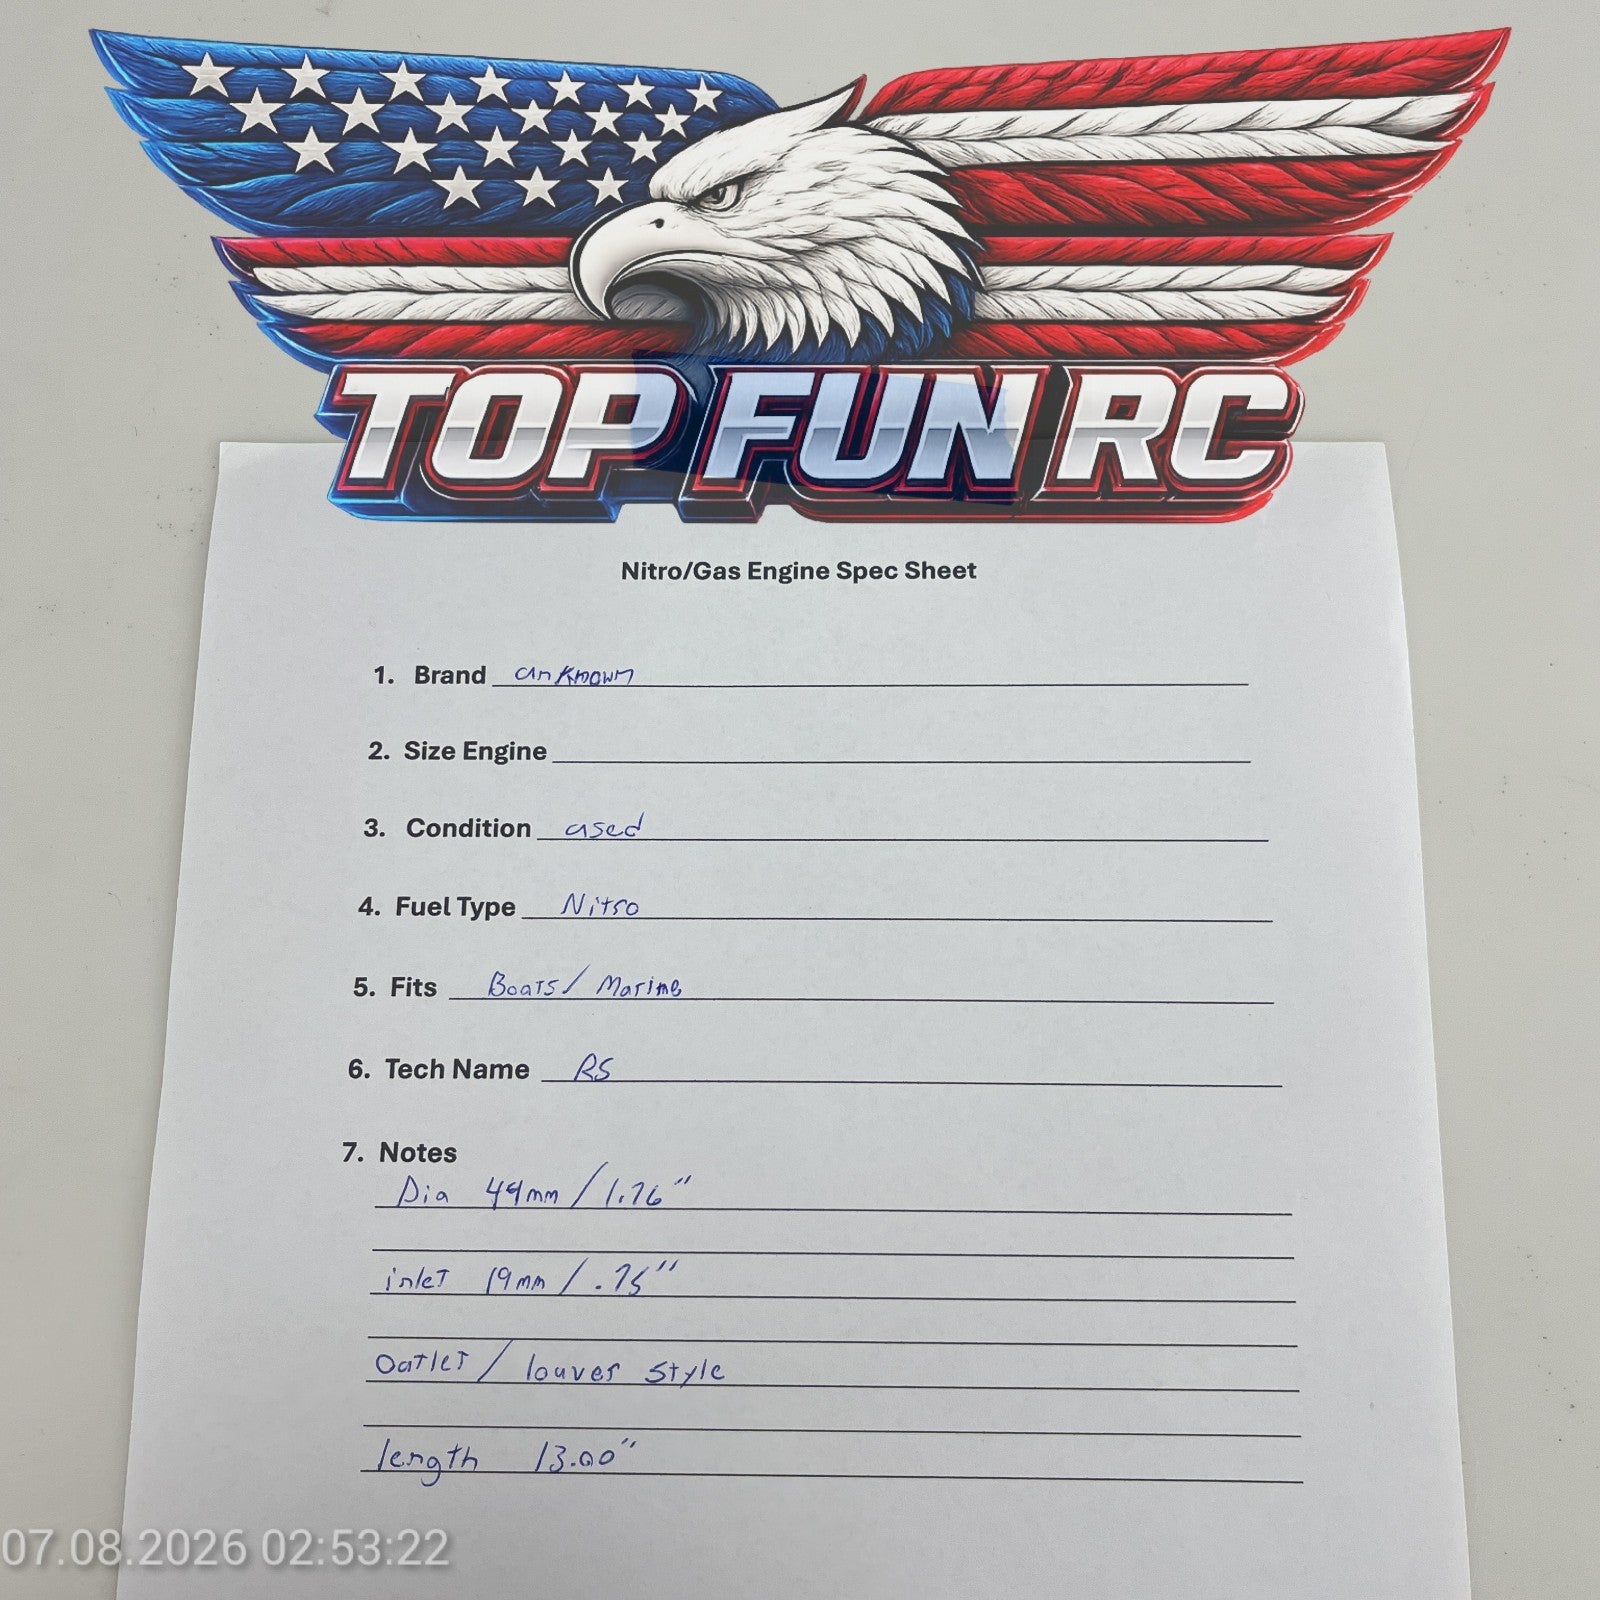 TOP FUN RC
Nitro/Gas Engine Spec Sheet
1. Brand unknown
2. Size Engine
3. Condition used
4. Fuel Type Nitro
5. Fits Boats/ Marine
6. Tech Name RS
7. Notes
Dia 44mm / 1.76"
inlet 19mm / .75"
Outlet / louver style
length 13.00"
07.08.2026 02:53:22